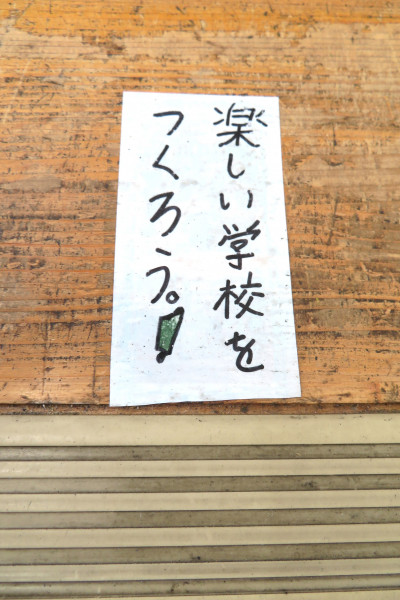 楽しい学校を
つくろう。!